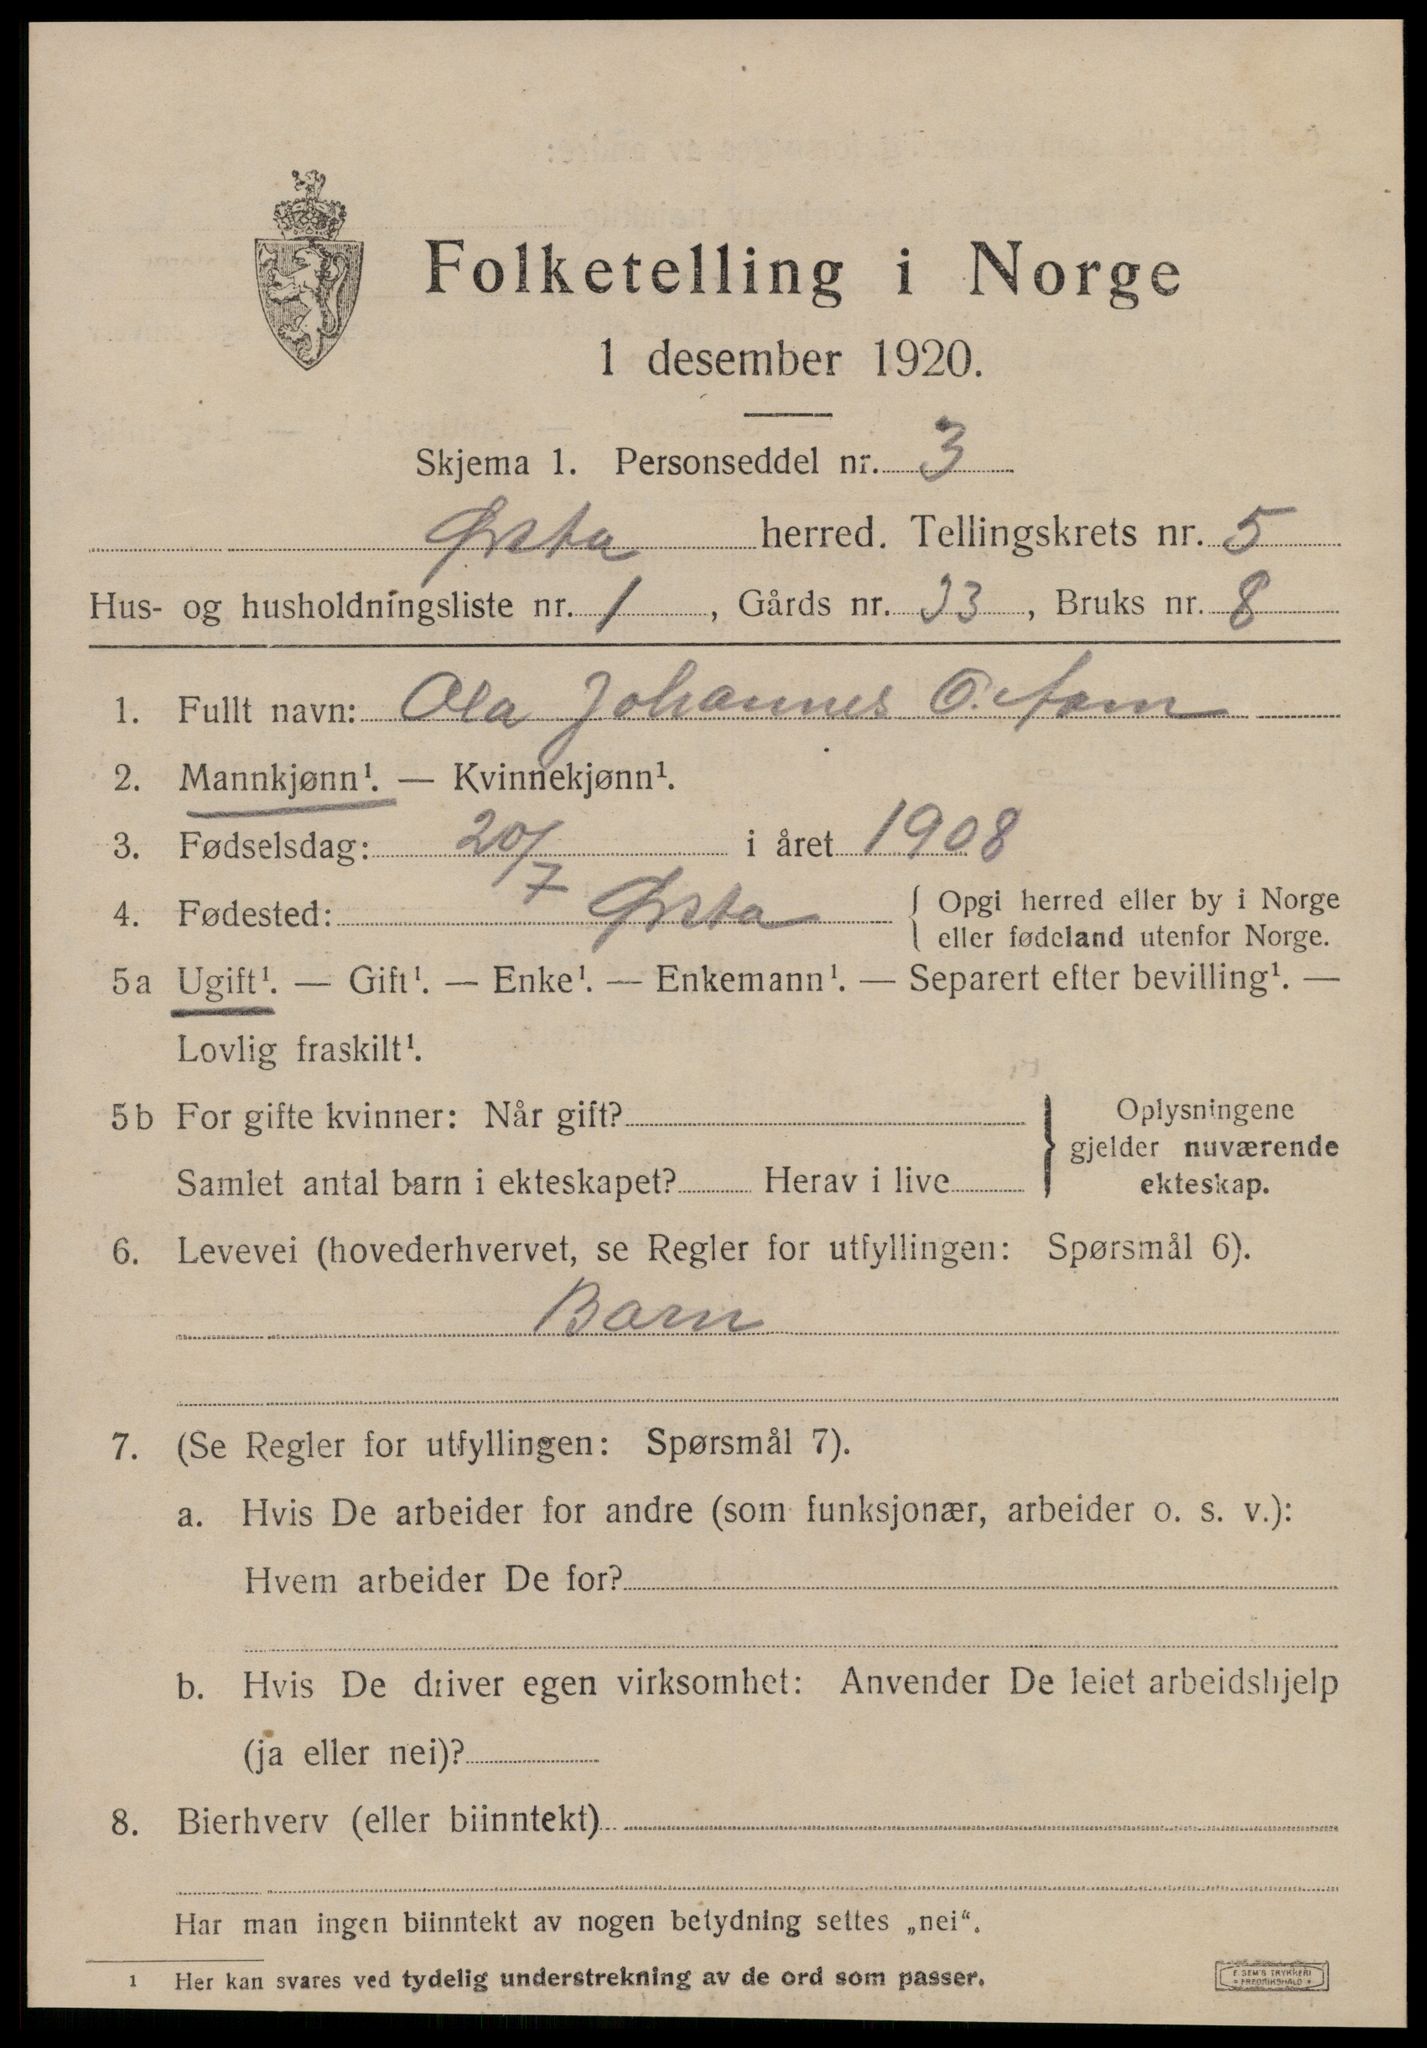 Folketelling i Norge
1 desember 1920.
Skjema 1. Personseddel nr. 3
Ørsta herred. Tellingskrets nr. 5
Hus- og husholdningsliste nr. 1, Gårds nr. 33, Bruks nr. 8
1. Fullt navn: Ola Johannes O. Aam
2. Mannkjønn¹. — Kvinnekjønn¹.
3. Fødselsdag: 20/7 i året 1908
4. Fødested: Ørsta { Opgi herred eller by i Norge
eller fødeland utenfor Norge.
5a Ugift¹. — Gift¹. — Enke¹. — Enkemann¹. — Separert efter bevilling¹. —
Lovlig fraskilt¹.
5b For gifte kvinner: Når gift?
Samlet antal barn i ekteskapet? Herav i live
} Oplysningene
gjelder nuværende
ekteskap.
6. Levevei (hovederhvervet, se Regler for utfyllingen: Spørsmål 6).
Barn
7. (Se Regler for utfyllingen: Spørsmål 7).
a. Hvis De arbeider for andre (som funksjonær, arbeider o. s. v.):
Hvem arbeider De for?
b. Hvis De driver egen virksomhet: Anvender De leiet arbeidshjelp
(ja eller nei)?
8. Bierhverv (eller biinntekt)
Har man ingen biinntekt av nogen betydning settes „nei“.
1 Her kan svares ved tydelig understrekning av de ord som passer.
E. SEM'S TRYKKERI
FREDRIKSHALD